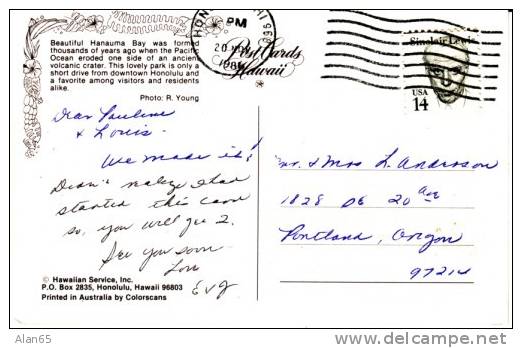 Beautiful Hanauma Bay was formed
thousands of years ago when the Pacific
Ocean eroded one side of an ancient
volcanic crater. This lovely park is only a
short drive from downtown Honolulu and
a favorite among visitors and residents
alike.
Photo: R. Young
Dear Pauline
& Louis.
We made it!
Didn't realize I had
started this card
so, you will get 2.
See you soon
Lou
© Hawaiian Service, Inc.
P.O. Box 2835, Honolulu, Hawaii 96803
Printed in Australia by Colorscans
PM
20
Post Cards
Hawaii
Sinclair Lewis
USA
14
Mr. & Mrs L. Anderson
1828 DE 20 ave
Portland, Oregon
97214
Alan65
www.delcampe.net